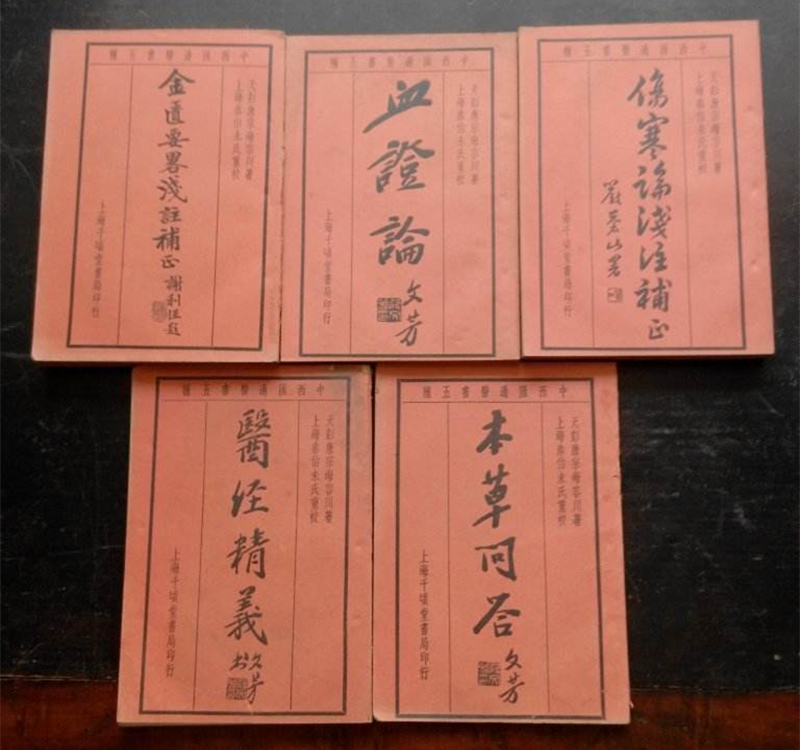 中西匯通醫書五種
天彭唐宗海容川著
上海秦伯未氏重校
金匱要畧淺註補正
謝利恒題
上海千頃堂書局印行
中西匯通醫書五種
天彭唐宗海容川著
上海秦伯未氏重校
血證論
文芳
上海千頃堂書局印行
中西匯通醫書五種
天彭唐宗海容川著
上海秦伯未氏重校
傷寒論淺注補正
嚴蒼山署
上海千頃堂書局印行
中西匯通醫書五種
天彭唐宗海容川著
上海秦伯未氏重校
醫經精義
文芳
上海千頃堂書局印行
中西匯通醫書五種
天彭唐宗海容川著
上海秦伯未氏重校
本草问答
文芳
上海千頃堂書局印行